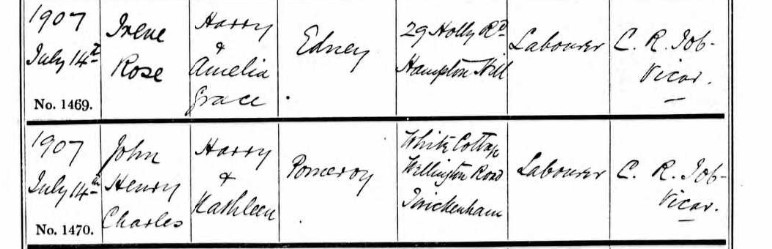 1907
July 14th
No. 1469.
Irene
Rose
Harry
&
Amelia
Grace
Edney
29 Holly Rd
Hampton Hill
Labourer
C. R. Job-
Vicar.
1907
July 14th
No. 1470.
John
Henry
Charles
Harry
&
Kathleen
Pomeroy
White Cottage
Wellington Road
Twickenham
Labourer
C. R. Job-
Vicar.